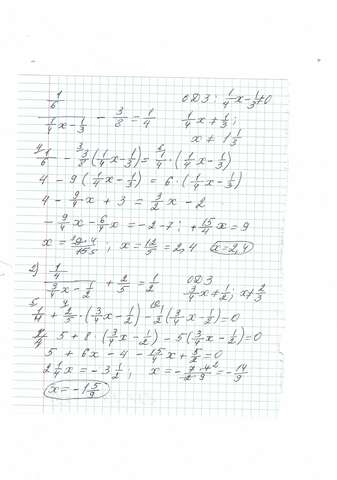 1/6 / (1/4 x - 1/3) - 3/8 = 1/4    ОДЗ: 1/4 x - 1/3 ≠ 0
1/4 x ≠ 1/3;
x ≠ 1 1/3
1/6 - 3/8 (1/4 x - 1/3) = 1/4 · (1/4 x - 1/3)
4 - 9 (1/4 x - 1/3) = 6 · (1/4 x - 1/3)
4 - 9/4 x + 3 = 3/2 x - 2
- 9/4 x - 6/4 x = -2 - 7; + 15/4 x = 9
x = ; x = 12/5 = 2,4 x = 2,4
2) 1/4 / (3/4 x - 1/2) + 2/5 = 1/2    ОДЗ
3/4 x ≠ 1/2; x ≠ 2/3
1/4 + 2/5 · (3/4 x - 1/2) - 1/2 (3/4 x - 1/2) = 0
5 + 8 (3/4 x - 1/2) - 5 (3/4 x - 1/2) = 0
5 + 6x - 4 - 15/4 x + 5/2 = 0
2 1/4 x = - 3 1/2; x = - 7·4/2·9 = - 14/9
x = - 1 5/9